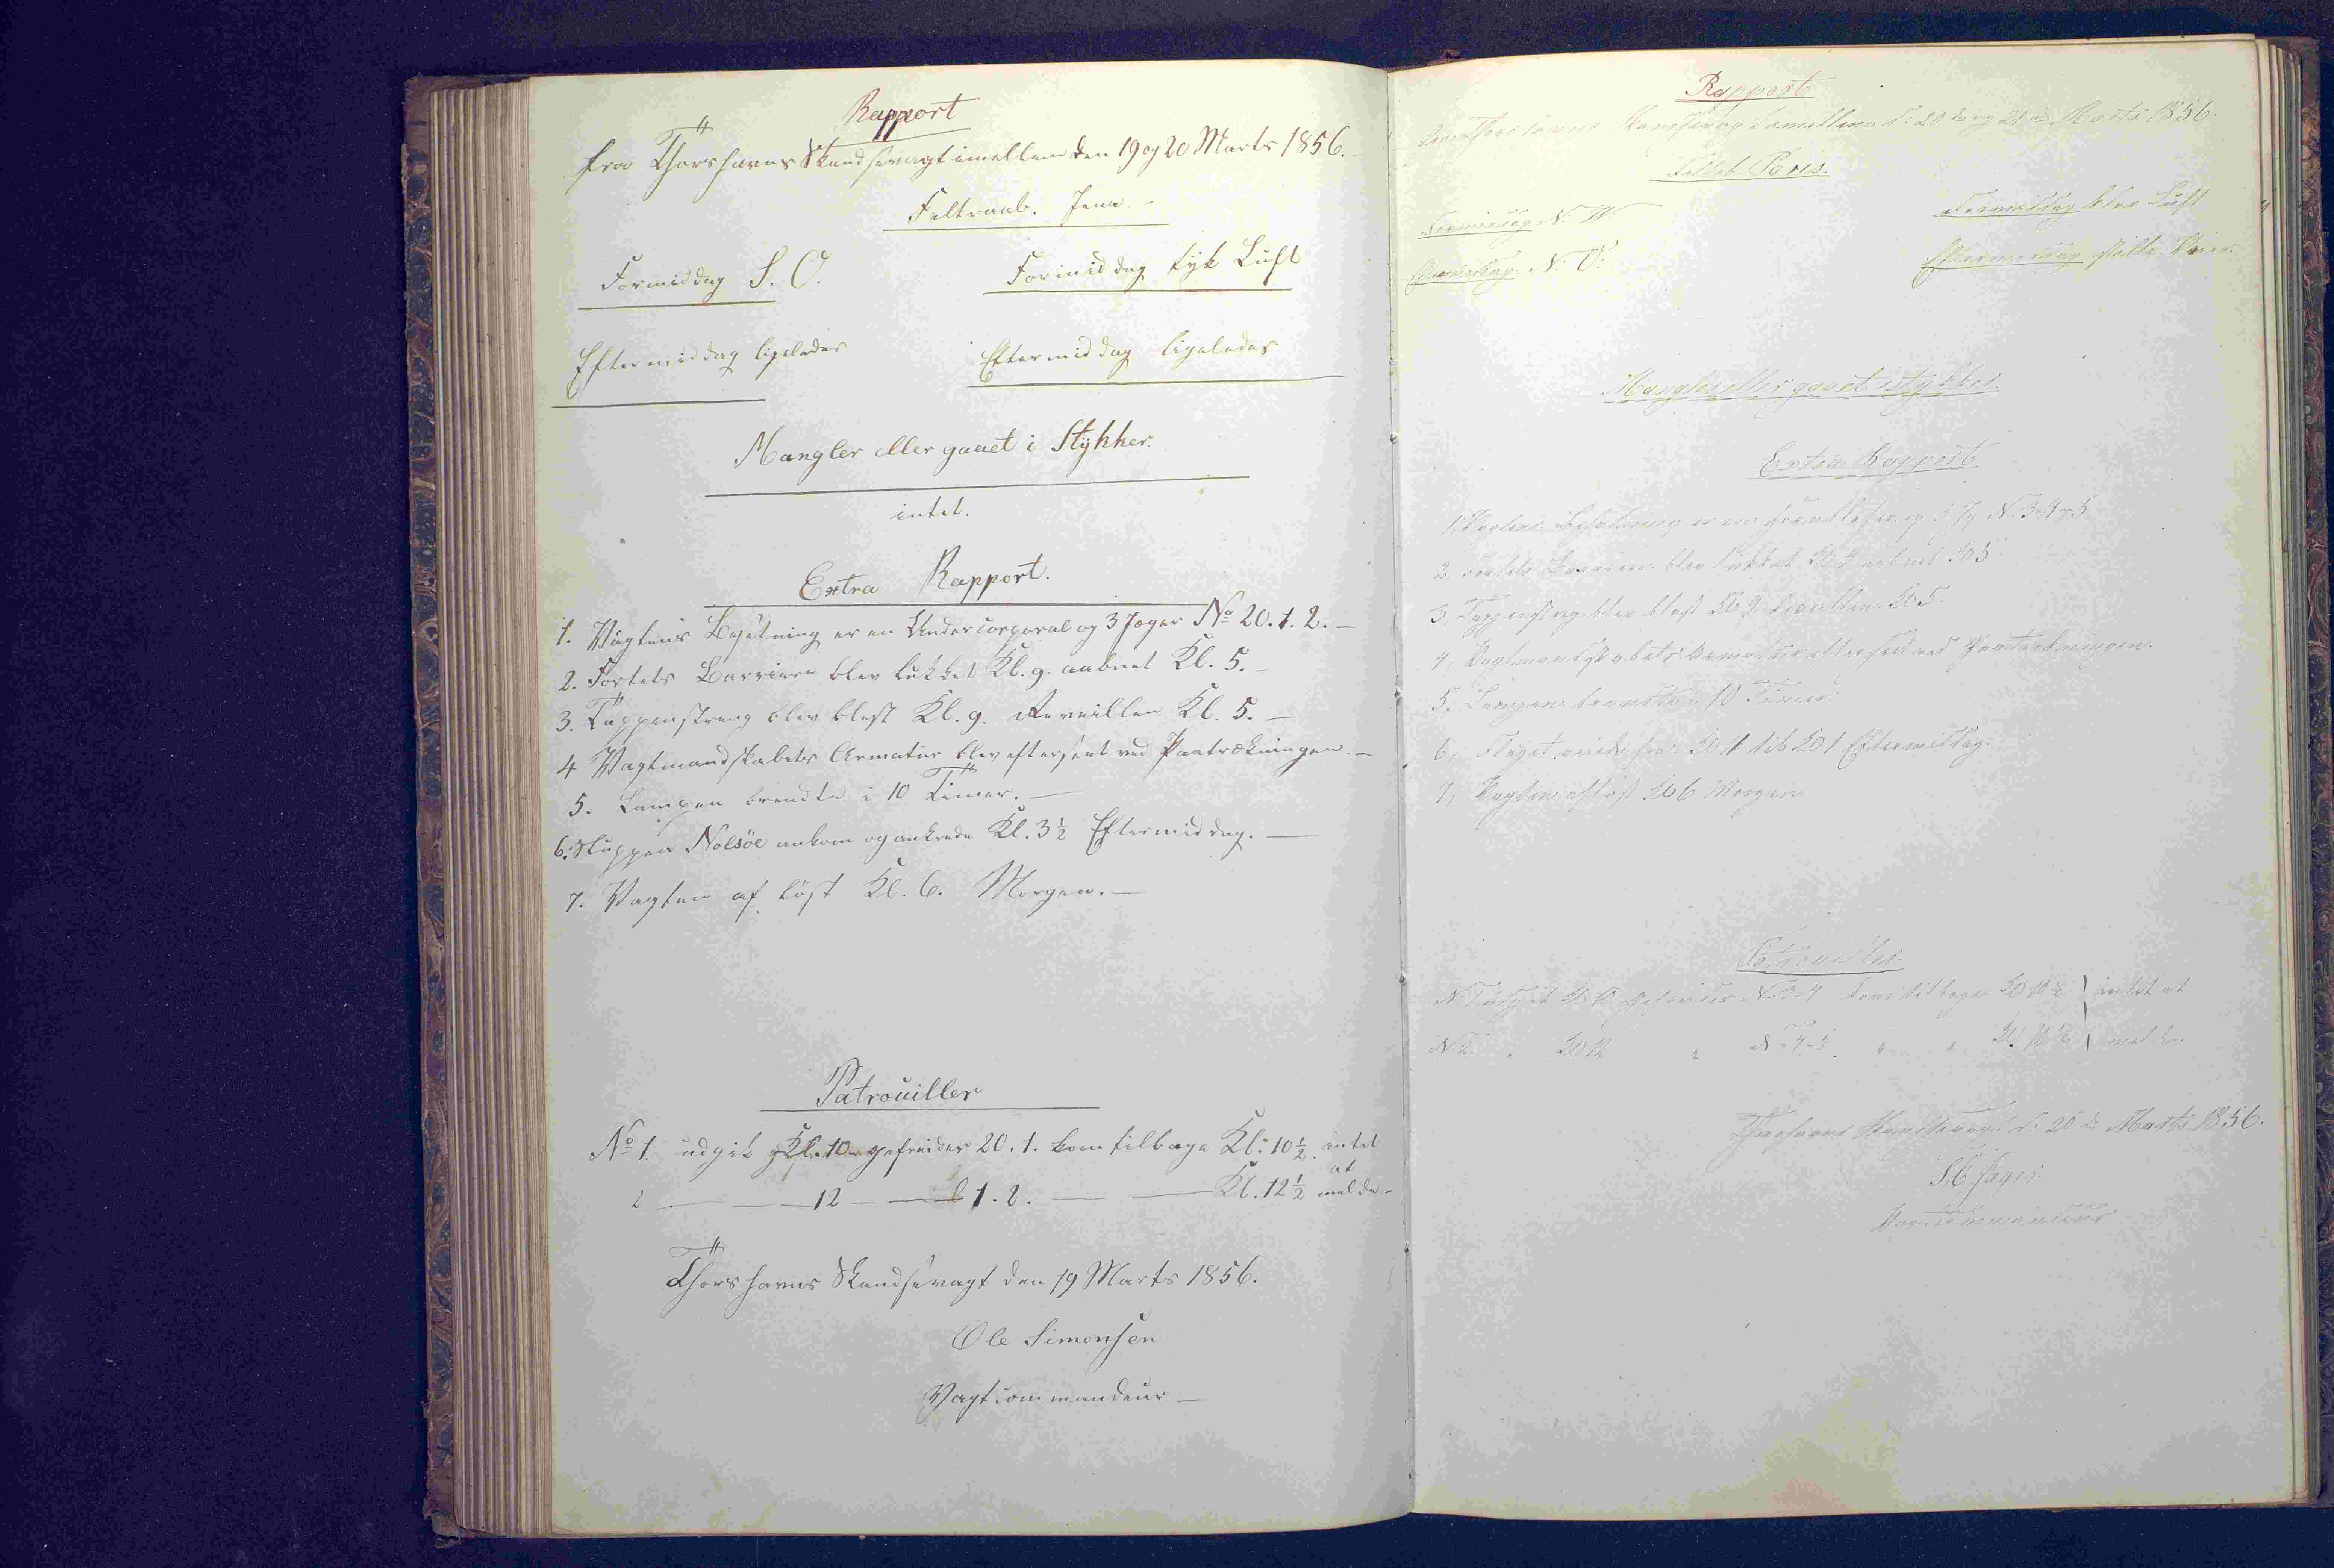 Rapport
fra Thorshavns Skandsevagt imellem den 19 og 20 Marts 1856.
Feltraab. Jena.
Formiddag S. O.
Formiddag tyk Luft
Eftermiddag ligeledes
Eftermiddag ligeledes
Mangler eller gaaet i Stykker.
intet.
Extra Rapport.
1. Vagtens Besætning er en Undercorporal og 3 Jæger No 20. 1. 2. —
2. Fortets Barrieren blev lukket Kl. 9. aabnet Kl. 5. —
3. Tappenstreng blev blæst Kl. 9. Reveillen Kl. 5. —
4 Vagtmandskabets Armatur blev efterseet ved Paatrækningen. —
5. Lampen brendte i 10 Timer. —
6. Sluppen Nolsöe ankom og ankrede Kl. 3½ Eftermiddag. —
7. Vagten afløst Kl. 6. Morgen. —
Patrouiller
No 1. udgik Kl. 10 gefreider 20. 1. kom tilbage Kl. 10½ intet
at
2 — — 12 — — 1. 2. — — Kl. 12½ melde —
Thorshavns Skandsevagt den 19 Marts 1856.
Ole Simonsen
Vagtcommandeur. —
Rapport
fra Thorshavns Skandsevagt imellem d: 20de og 21de Marts 1856.
Feltrb Paris.
Formiddag N. W.
Formiddag klar Luft
Eftermiddag N. O.
Eftermiddag stille Veir.
Mangler eller gaaet i stykker
Extra Rapport
1. Vagtens Besætning er en og 3 Jg No 3-4 og 5
2, Fortets Barrieren blev lukket Kl 9 aabnet Kl 5
3, Tappenstreg blev blæst Kl 9. Reveillen Kl 5.
4, Vagtmandskabets Armatur efterseet ved Paatrækningen.
5. Lampen brændte i 10 Timer.
6, Flaget vaiede fra Kl 11 til Kl 1 Eftermiddag.
7, Vagten afløst Kl 6 Morgen
Patrouiller
No 1 udgik Kl 10 gefreider No 3-4 kom tilbage Kl 10½ } intet at
No 2. " Kl 12 " No 4-5 " " Kl 12½ } melde
Thorshavns Skandsevagt d: 20de Marts 1856.
Vagtcommandeur